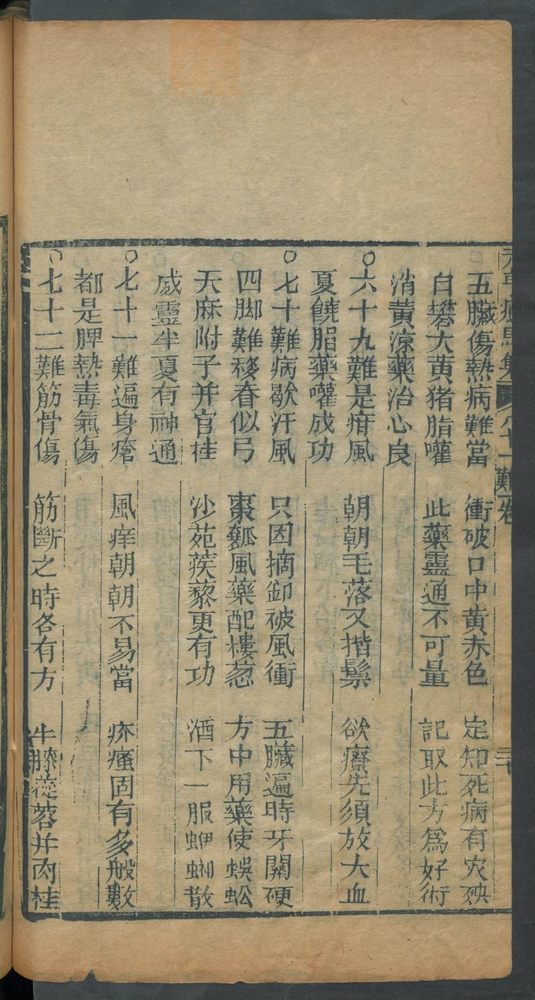 元亨療馬集 八十一難卷 三十
五臟傷熱病難當 衝破口中黃赤色 定知死病有灾殃
白礬大黃猪脂嚾 此藥靈通不可量 記取此方爲好術
消黃涼藥治心良
○六十九難是疳風 朝朝毛落又揩鬃 欲療先須放大血
夏饒脂藥嚾成功
○七十難病歇汗風 只因摘卸被風衝 五臟遍時牙關硬
四脚難移脊似弓 棗瓤風藥配樓葱 方中用藥使蜈蚣
天麻附子并官桂 沙苑蒺藜更有功 酒下一服螂蜘散
威靈半夏有神通
○七十一難遍身瘡 風痒朝朝不易當 疥瘙固有多般數
都是脾熱毒氣傷
○七十二難筋骨傷 筋斷之時各有方 牛膝蓯蓉并肉桂